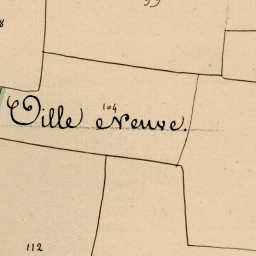 104
Ville Neuve.
112